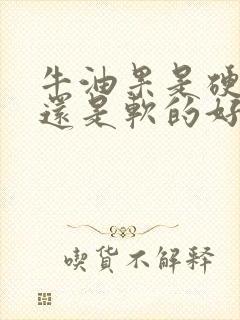 牛油果是硬
還是軟的好
喫貨不解释